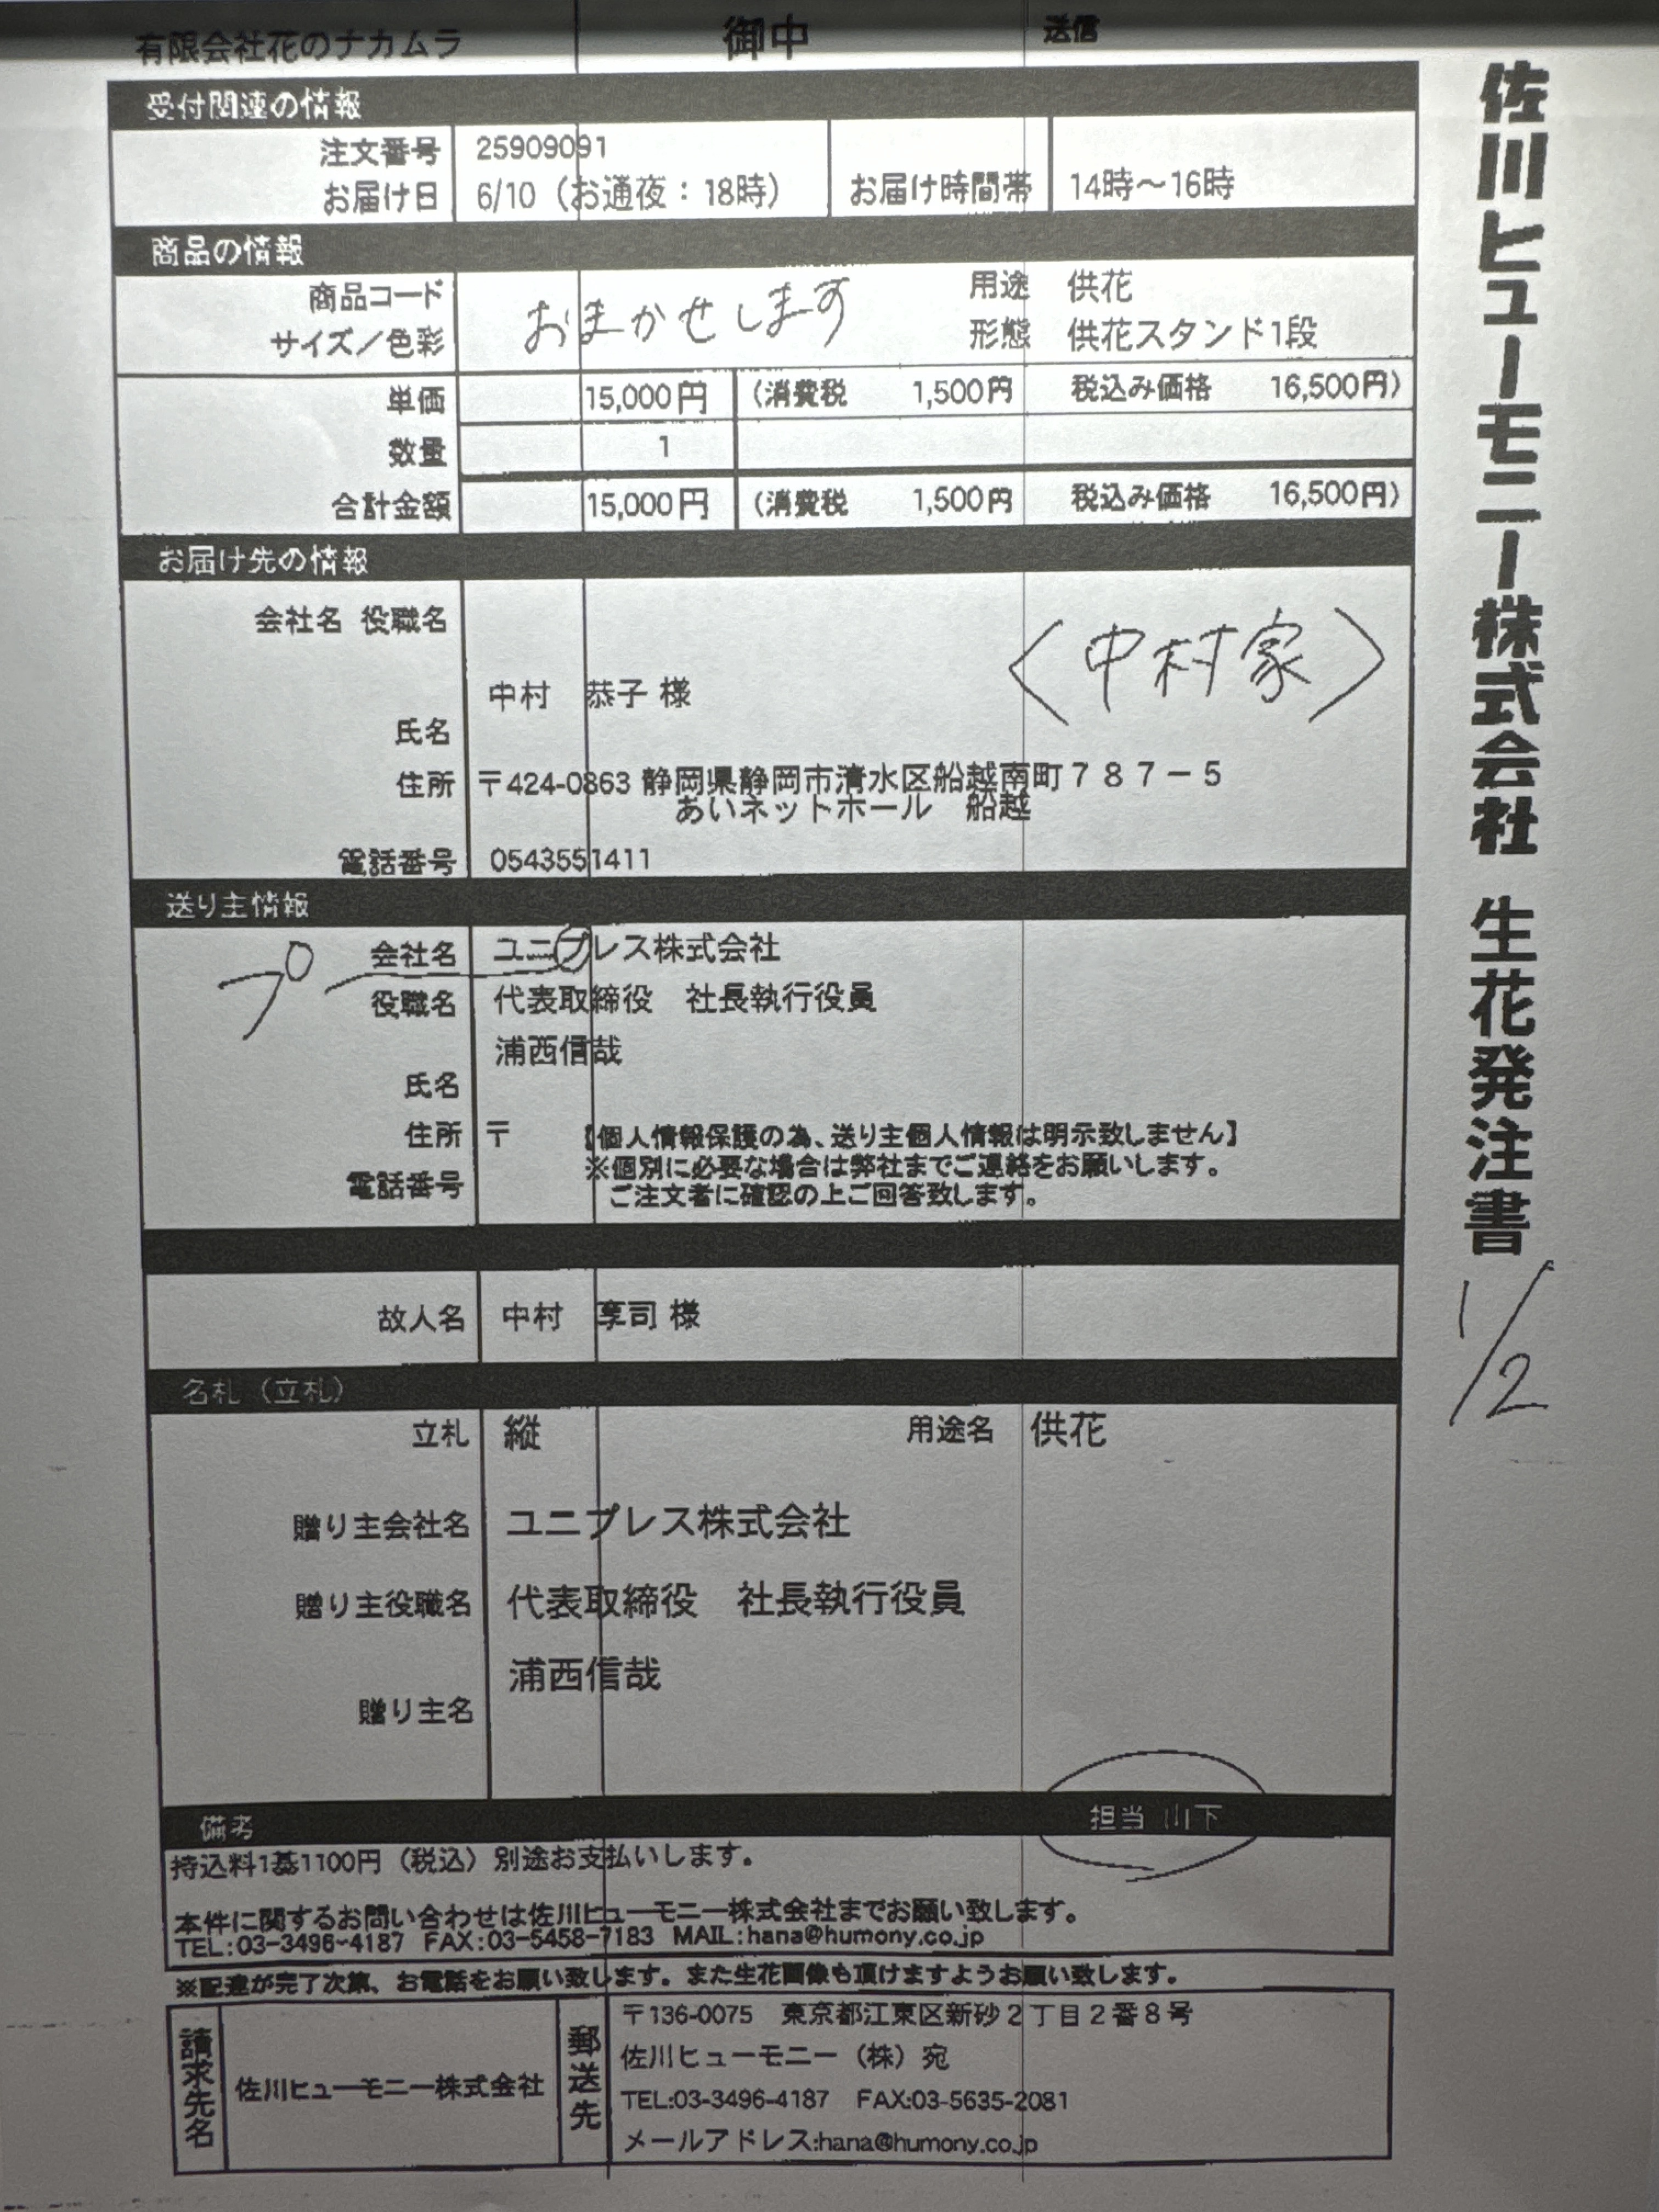 有限会社花のナカムラ 御中 送信
佐川ヒューモニー株式会社 生花発注書
1/2
受付関連の情報
注文番号 25909091
お届け日 6/10（お通夜：18時） お届け時間帯 14時～16時
商品の情報
商品コード 用途 供花
おまかせします
サイズ／色彩 形態 供花スタンド1段
単価 15,000円 （消費税 1,500円 税込み価格 16,500円）
数量 1
合計金額 15,000円 （消費税 1,500円 税込み価格 16,500円）
お届け先の情報
会社名 役職名
〈中村家〉
中村 恭子 様
氏名
住所 〒424-0863 静岡県静岡市清水区船越南町７８７－５
あいネットホール 船越
電話番号 0543551411
送り主情報
プ
会社名 ユニプレス株式会社
役職名 代表取締役 社長執行役員
浦西信哉
氏名
住所 〒 【個人情報保護の為、送り主個人情報は明示致しません】
※個別に必要な場合は弊社までご連絡をお願いします。
電話番号 ご注文者に確認の上ご回答致します。
故人名 中村 享司 様
名札（立札）
立札 縦 用途名 供花
贈り主会社名 ユニプレス株式会社
贈り主役職名 代表取締役 社長執行役員
浦西信哉
贈り主名
備考 担当 山下
持込料1基1100円（税込）別途お支払いします。
本件に関するお問い合わせは佐川ヒューモニー株式会社までお願い致します。
TEL:03-3496-4187 FAX:03-5458-7183 MAIL:hana@humony.co.jp
※配達が完了次第、お電話をお願い致します。また生花画像も頂けますようお願い致します。
請求先名 佐川ヒューモニー株式会社
郵送先 〒136-0075 東京都江東区新砂２丁目２番８号
佐川ヒューモニー（株）宛
TEL:03-3496-4187 FAX:03-5635-2081
メールアドレス:hana@humony.co.jp